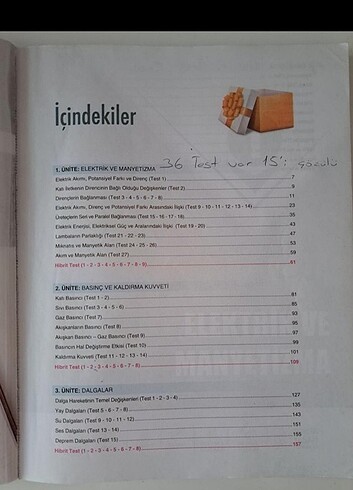 İçindekiler
36 Test var 15'i çözülü
1. ÜNİTE: ELEKTRİK VE MANYETİZMA
Elektrik Akımı, Potansiyel Farkı ve Direnç (Test 1) 7
Katı İletkenin Direncinin Bağlı Olduğu Değişkenler (Test 2)
Dirençlerin Bağlanması (Test 3 - 4 - 5 - 6 - 7 - 8) 11
Elektrik Akımı, Direnç ve Potansiyel Farkı Arasındaki İlişki (Test 9 - 10 - 11 - 12 - 13 - 14) 23
Üreteçlerin Seri ve Paralel Bağlanması (Test 15 - 16 - 17 - 18) 35
Elektrik Enerjisi, Elektriksel Güç ve Aralarındaki İlişki (Test 19 - 20) 43
Lambaların Parlaklığı (Test 21 - 22 - 23) 47
Mıknatıs ve Manyetik Alan (Test 24 - 25 - 26) 53
Akım ve Manyetik Alan (Test 27) 59
Hibrit Test (1 - 2 - 3 - 4 - 5 - 6 - 7 - 8 - 9) 61
2. ÜNİTE: BASINÇ VE KALDIRMA KUVVETİ
Katı Basıncı (Test 1 - 2) 81
Sıvı Basıncı (Test 3 - 4 - 5 - 6) 85
Gaz Basıncı (Test 7) 93
Akışkanların Basıncı (Test 8) 95
Akışkan Basıncı – Gaz Basıncı (Test 9) 97
Basıncın Hal Değiştirme Etkisi (Test 10) 99
Kaldırma Kuvveti (Test 11 - 12 - 13 - 14) 101
Hibrit Test (1 - 2 - 3 - 4 - 5 - 6 - 7 - 8) 109
3. ÜNİTE: DALGALAR
Dalga Hareketinin Temel Değişkenleri (Test 1 - 2 - 3 - 4) 127
Yay Dalgaları (Test 5 - 6 - 7 - 8) 135
Su Dalgaları (Test 9 - 10 - 11 - 12) 143
Ses Dalgaları (Test 13 - 14) 151
Deprem Dalgaları (Test 15) 155
Hibrit Test (1 - 2 - 3 - 4 - 5 - 6 - 7 - 8) 157